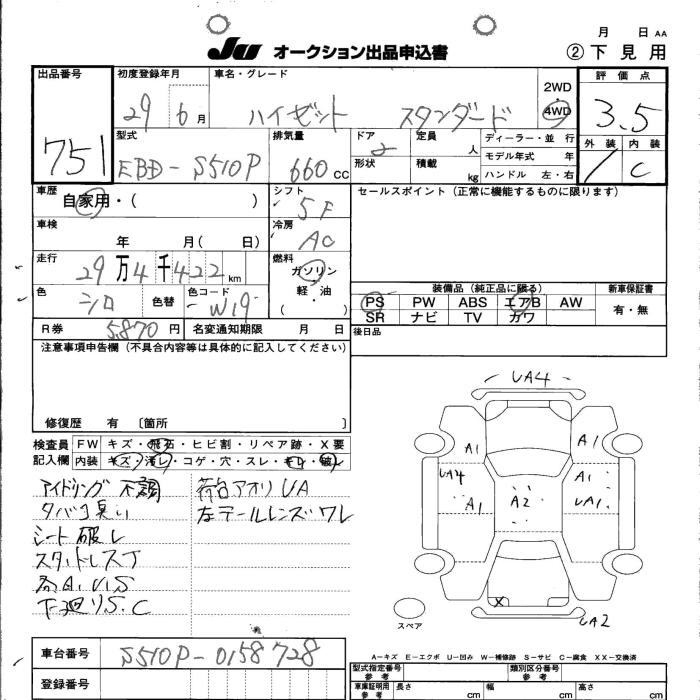 月 日 AA
JU オークション出品申込書 ②下見用
出品番号 初度登録年月 車名・グレード 2WD 評価点
751 29 6月 ハイゼット スタンダード 4WD 3.5
型式 排気量 ドア 定員 ディーラー・並行 外装 内装
EBD-S510P 660CC 2 人 モデル年式 年 / C
形状 積載 kg ハンドル 左・右
車歴 自家用・( ) シフト 5F セールスポイント (正常に機能するものに限ります)
車検 年 月( 日) 冷房 AC
走行 29万4千422km 燃料 ガソリン 軽・油 ( )
装備品 (純正品に限る) 新車保証書
色 シロ 色替 色コード W19 PS PW ABS エアB AW 有・無
SR ナビ TV カワ
R券 5,870円 名変通知期限 月 日 後日品
注意事項申告欄 (不具合内容等は具体的に記入してください)
修復歴 有 〔箇所 〕
検査員 FW キズ・飛石・ヒビ割・リペア跡・X要
記入欄 内装 キズ・汚レ・コゲ・穴・スレ・キレ・破レ
アイドリング 不調 荷台アオリUA
タバコ臭い 左テールレンズワレ
シート破レ
スタットレスT
各A.U.S
下廻りS.C
UA4
A1 A1
UA4 A1
A1 A2 UA1
X
UA2
スペア
車台番号 S510P-0158728
登録番号
A－キズ E－エクボ U－凹み W－補修跡 S－サビ C－腐食 XX－交換済
型式指定番号 参考 類別区分番号 参考
車庫証明用 参考 長さ cm 幅 cm 高さ cm